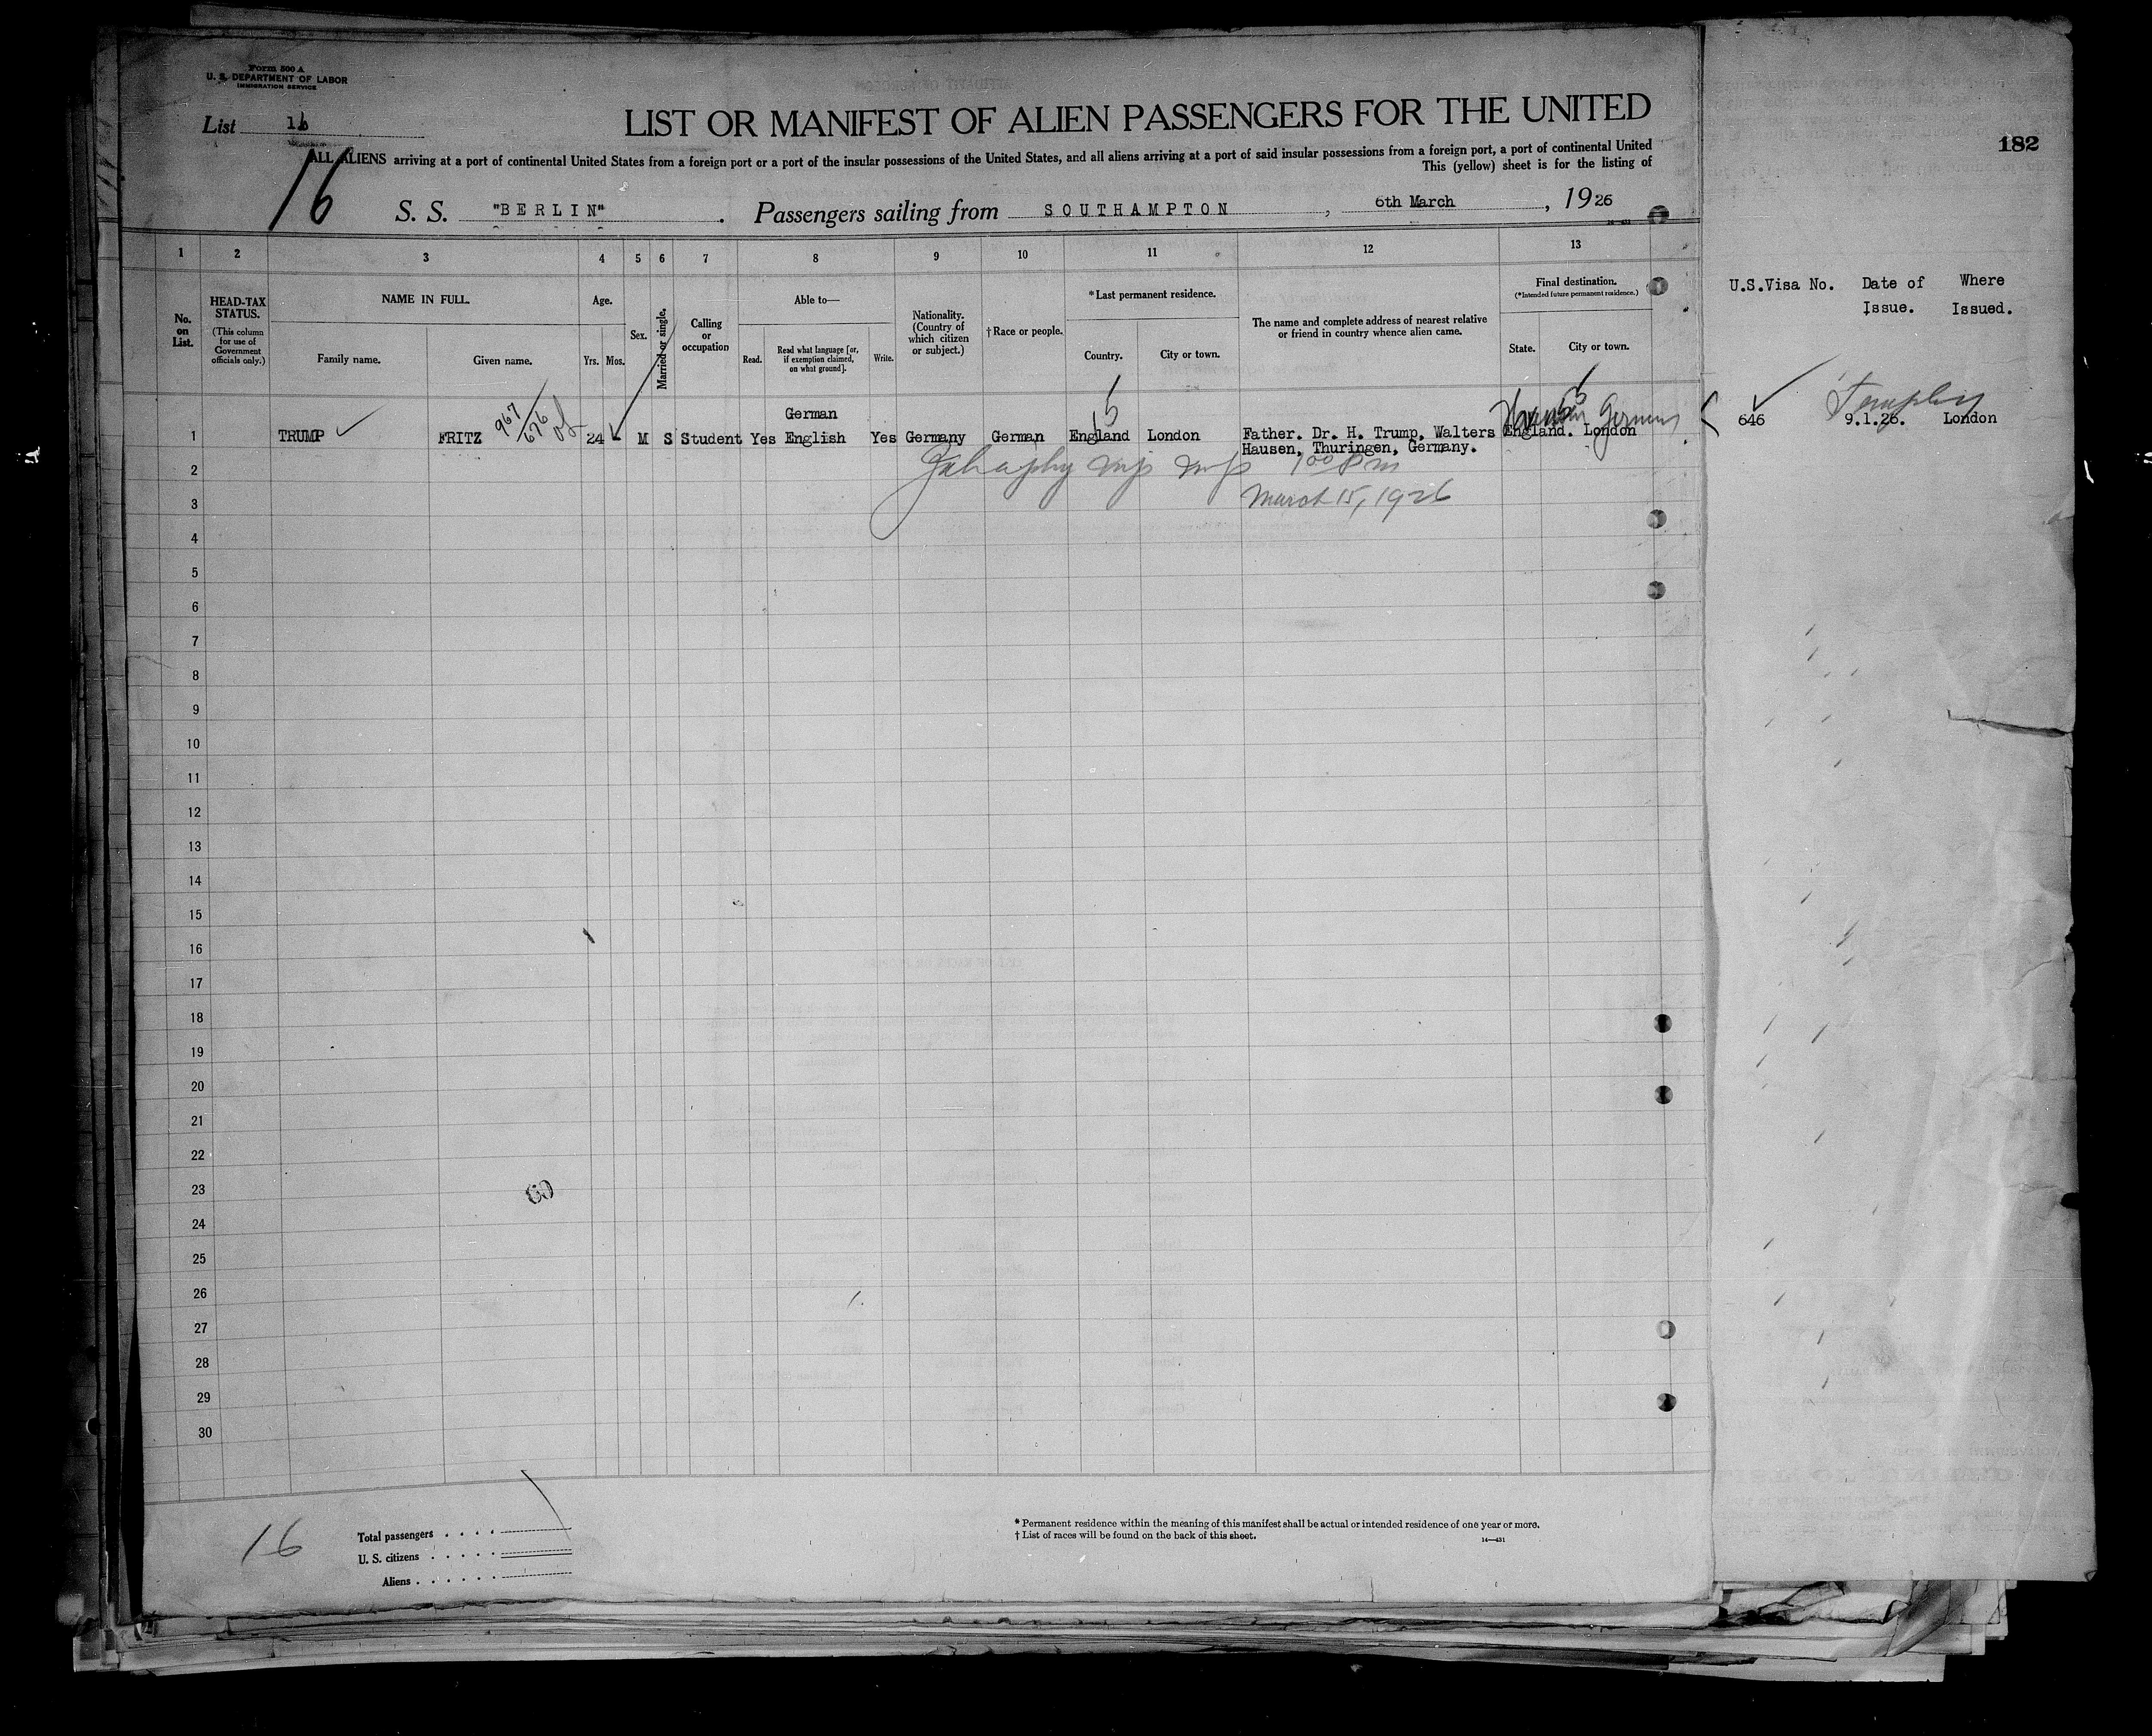 Form 500 A
U. S. DEPARTMENT OF LABOR
IMMIGRATION SERVICE
List 16
LIST OR MANIFEST OF ALIEN PASSENGERS FOR THE UNITED
182
ALL ALIENS arriving at a port of continental United States from a foreign port or a port of the insular possessions of the United States, and all aliens arriving at a port of said insular possessions from a foreign port, a port of continental United
This (yellow) sheet is for the listing of
16
S. S. "BERLIN". Passengers sailing from SOUTHAMPTON, 6th March, 1926
1 2 3 4 5 6 7 8 9 10 11 12 13
No. on List.
HEAD-TAX STATUS.
(This column for use of Government officials only.)
NAME IN FULL.
Family name. Given name.
Age.
Yrs. Mos.
Sex.
Married or single.
Calling or occupation
Able to—
Read. Read what language [or, if exemption claimed, on what ground]. Write.
Nationality. (Country of which citizen or subject.)
†Race or people.
*Last permanent residence.
Country. City or town.
The name and complete address of nearest relative or friend in country whence alien came.
Final destination.
(*Intended future permanent residence.)
State. City or town.
U.S.Visa No. Date of Issue. Where Issued.
967/676
German
5
Germany
1 TRUMP FRITZ 24 - M S Student Yes English Yes Germany German England London Father. Dr. H. Trump, Walters England. London 646 9.1.26. London
Hausen, Thuringen, Germany.
2 1 00 Pm
3 March 15, 1926
4
5
6
7
8
9
10
11
12
13
14
15
16
17
18
19
20
21
22
23
24
25
26
27
28
29
30
16
Total passengers
U. S. citizens
Aliens
* Permanent residence within the meaning of this manifest shall be actual or intended residence of one year or more.
† List of races will be found on the back of this sheet.
14—431